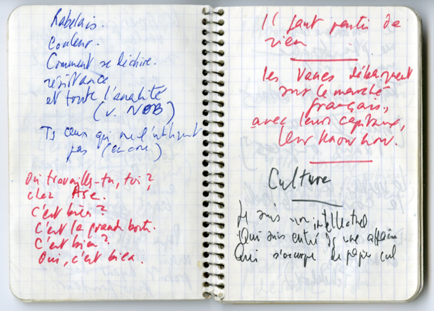 Rabelais.
couleur.
Comment se déchire.
résistance
et toute l'analité
(v. NOB)
Ts ceux qui ne l'utilisent
pas (encore)
Où travailles-tu, toi ?
chez Ace.
C'est bien ?
C'est la grande boîte.
C'est bien ?
Oui, c'est bien.
Il faut partir de
rien
les Vanes débarquent
sur le marché
français,
avec leurs capitaux,
leur know how.
Culture
Je suis un intellectuel
Qui suis entré ds une affaire
Qui s'occupe de papier cul